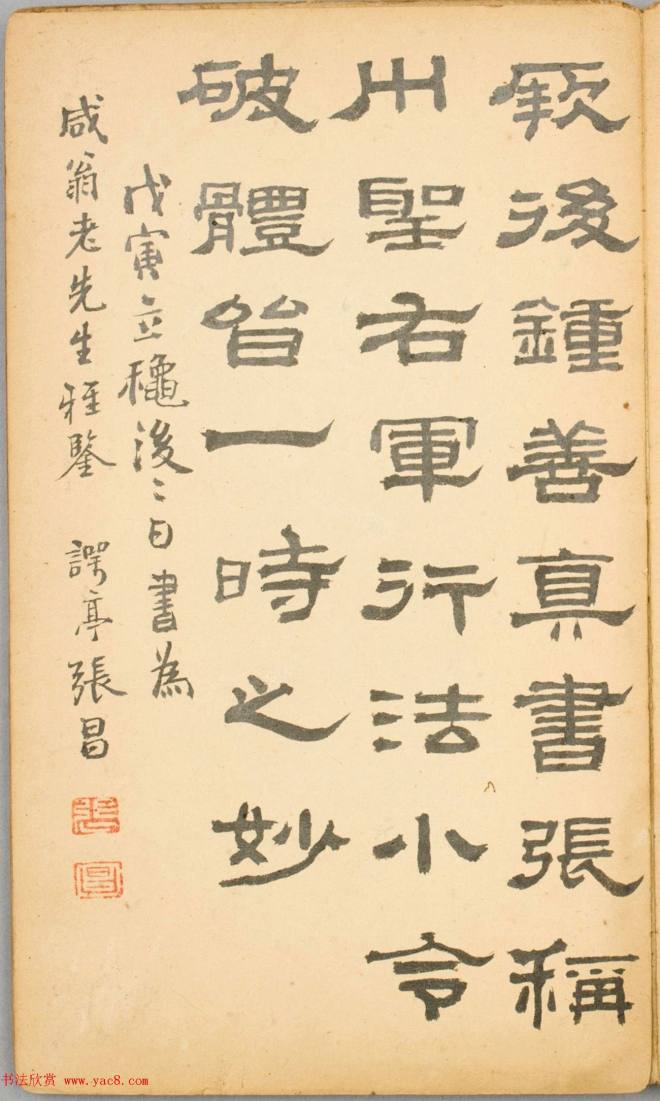 厥後鍾善真書張稱
艸聖右軍行法小令
破體皆一時之妙
戊寅立穐後二日書為
咸翁老先生雅鑒 諤亭張昌
張
昌
书法欣赏 www.yac8.com